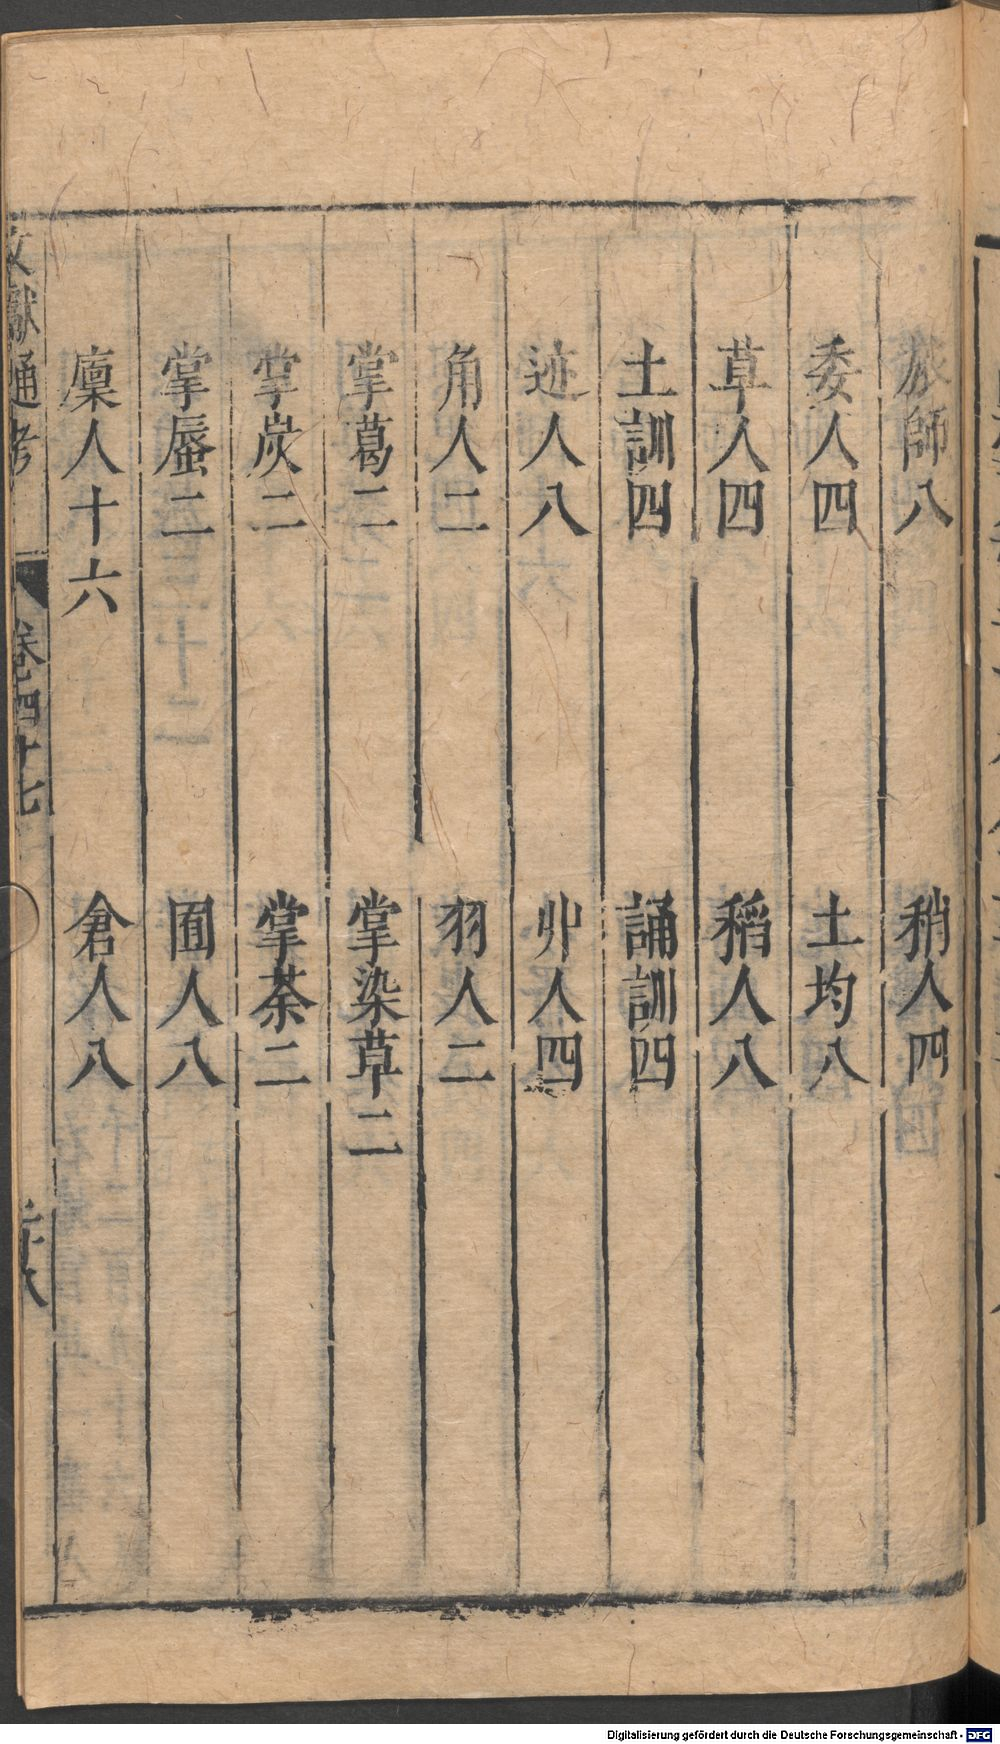 旅師八　稍人四
委人四　土均八
草人四　稻人八
土訓四　誦訓四
迹人八　丱人四
角人二　羽人二
掌葛二　掌染草二
掌炭二　掌荼二
掌蜃二　囿人八
廩人十六　倉人八
文獻通考　卷四十七
Digitalisierung gefördert durch die Deutsche Forschungsgemeinschaft - DFG